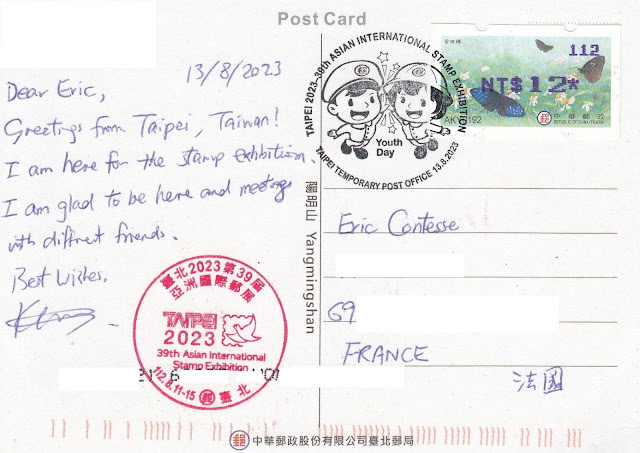 Post Card
13/8/2023
Dear Eric,
Greetings from Taipei, Taiwan!
I am here for the stamp exhibition.
I am glad to be here and meetings
with diffrent friends.
Best Wishes,
臺北2023第39屆
亞洲國際郵展
TAIPEI
2023
39th Asian International
Stamp Exhibition
112.8.11-15 臺北
TAIPEI 2023-39th ASIAN INTERNATIONAL STAMP EXHIBITION
Youth
Day
TAIPEI TEMPORARY POST OFFICE 13.8.2023
112
NT$12*
中華郵政
REPUBLIC OF CHINA (TAIWAN)
陽明山 Yangmingshan
Eric Contesse
69
FRANCE
法國
中華郵政股份有限公司臺北郵局